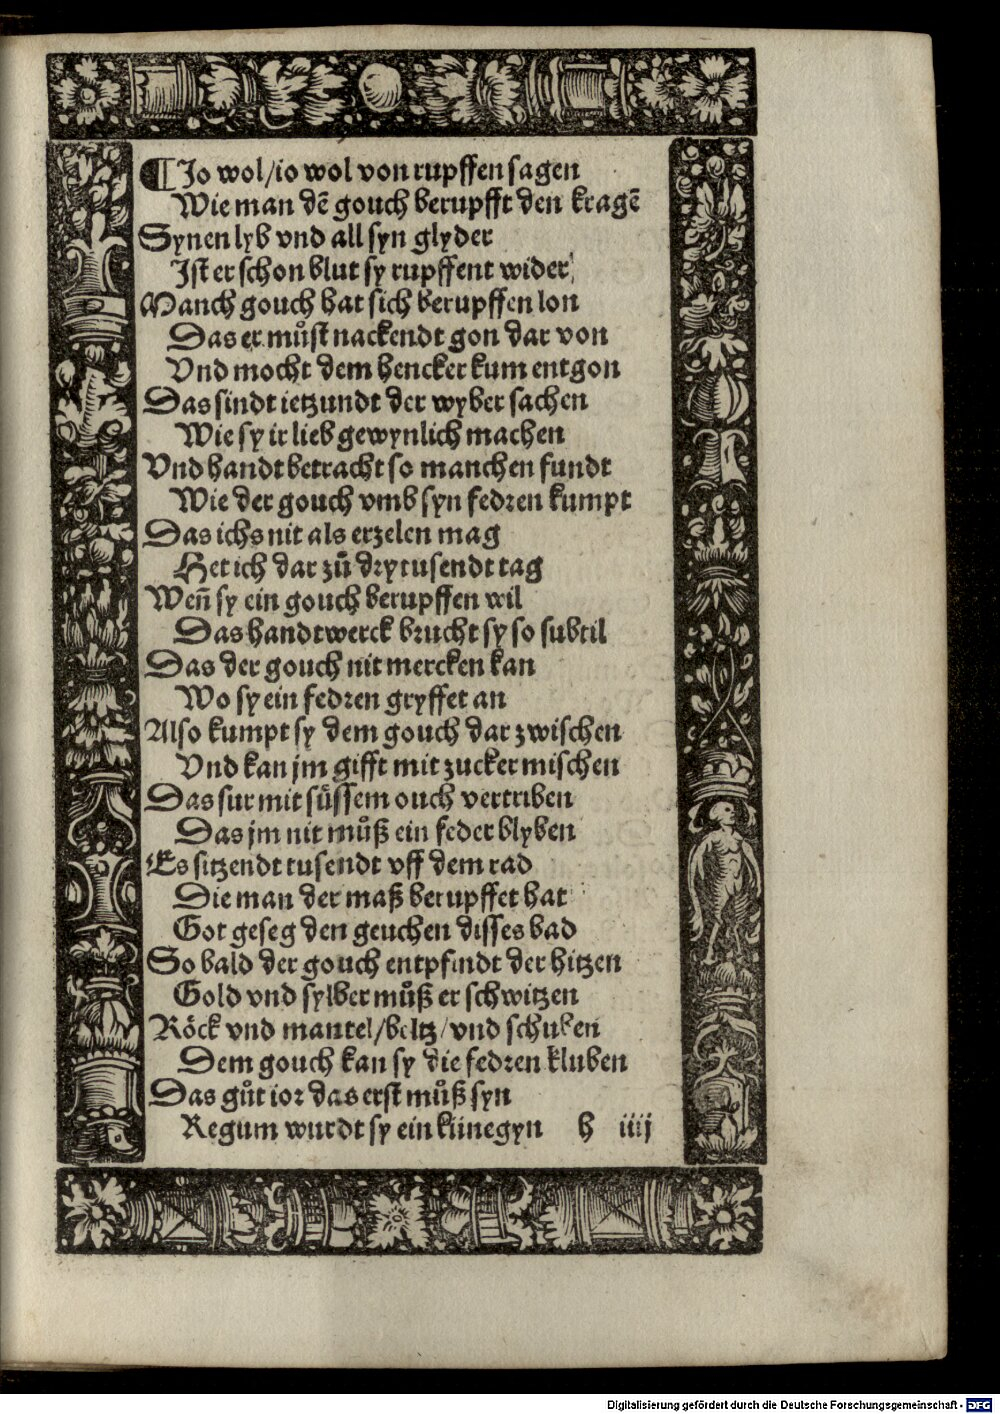 ¶ Jo wol/io wol von rupffen sagen
Wie man dē gouch berupfft den kragē
Synen lyb vnd all syn glyder
Jst er schon blut sy rupffent wider
Manch gouch hat sich berupffen lon
Das er můst nackendt gon dar von
Vnd mocht dem hencker kum entgon
Das sindt ietzundt der wyber sachen
Wie sy ir lieb gewynlich machen
Vnd handt betracht so manchen fundt
Wie der gouch vmb syn fedren kumpt
Das ichs nit als erzelen mag
Het ich dar zů drytusendt tag
Weñ sy ein gouch berupffen wil
Das handtwerck brucht sy so subtil
Das der gouch nit mercken kan
Wo sy ein fedren gryffet an
Also kumpt sy dem gouch dar zwischen
Vnd kan jm gifft mit zucker mischen
Das sur mit süssem ouch vertriben
Das jm nit můß ein feder blyben
Es sitzendt tusendt vff dem rad
Die man der maß berupffet hat
Got geseg den geuchen disses bad
So bald der gouch entpfindt der hitzen
Gold vnd sylber můß er schwitzen
Röck vnd mantel/beltz/vnd schuben
Dem gouch kan sy die fedren kluben
Das gůt ior das erst můß syn
Regum wurdt sy ein künegyn h iiij
Digitalisierung gefördert durch die Deutsche Forschungsgemeinschaft - DFG